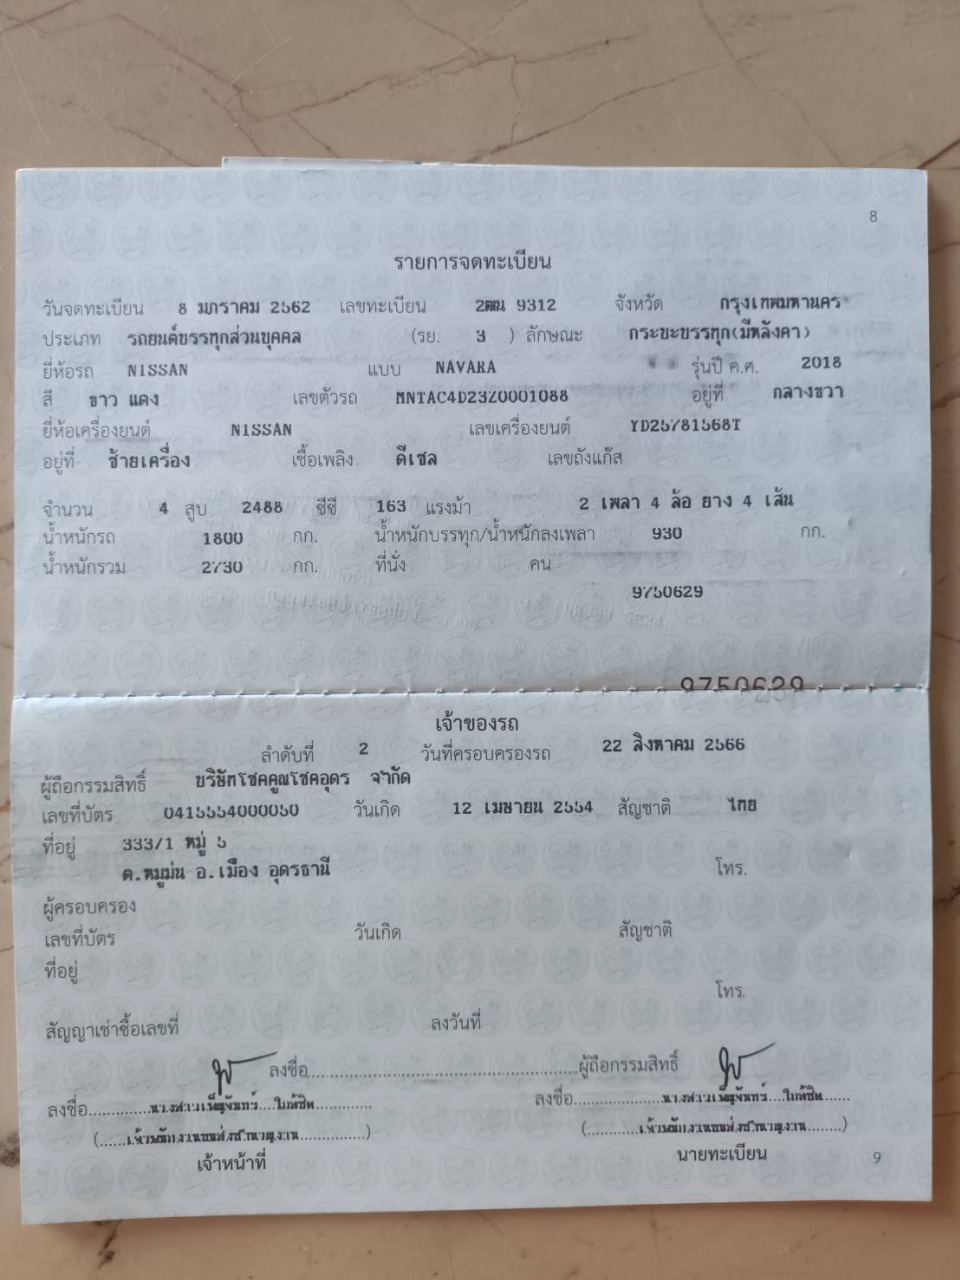 8
รายการจดทะเบียน
วันจดทะเบียน 8 มกราคม 2562 เลขทะเบียน 2ฒน 9312 จังหวัด กรุงเทพมหานคร
ประเภท รถยนต์บรรทุกส่วนบุคคล (รย. 3 ) ลักษณะ กระบะบรรทุก(มีหลังคา)
ยี่ห้อรถ NISSAN แบบ NAVARA รุ่นปี ค.ศ. 2018
สี ขาว แดง เลขตัวรถ MNTAC4D23Z0001088 อยู่ที่ กลางขวา
ยี่ห้อเครื่องยนต์ NISSAN เลขเครื่องยนต์ YD25781568T
อยู่ที่ ซ้ายเครื่อง เชื้อเพลิง ดีเซล เลขถังแก๊ส
จำนวน 4 สูบ 2488 ซีซี 163 แรงม้า 2 เพลา 4 ล้อ ยาง 4 เส้น
น้ำหนักรถ 1800 กก. น้ำหนักบรรทุก/น้ำหนักลงเพลา 930 กก.
น้ำหนักรวม 2730 กก. ที่นั่ง คน
9750629
9750629
เจ้าของรถ
ลำดับที่ 2 วันที่ครอบครองรถ 22 สิงหาคม 2566
ผู้ถือกรรมสิทธิ์ บริษัทโชคคูณโชคอุดร จำกัด
เลขที่บัตร 0415554000050 วันเกิด 12 เมษายน 2554 สัญชาติ ไทย
ที่อยู่ 333/1 หมู่ 5
ต.หมูม่น อ.เมือง อุดรธานี โทร.
ผู้ครอบครอง
เลขที่บัตร วันเกิด สัญชาติ
ที่อยู่
โทร.
สัญญาเช่าซื้อเลขที่ ลงวันที่
ลงชื่อ ผู้ถือกรรมสิทธิ์
ลงชื่อ นางสาวเพ็ญจันทร์ ใบลี ลงชื่อ นางสาวเพ็ญจันทร์
(เจ้าพนักงานขนส่งชำนาญงาน) (เจ้าพนักงานขนส่งชำนาญงาน)
เจ้าหน้าที่ นายทะเบียน 9